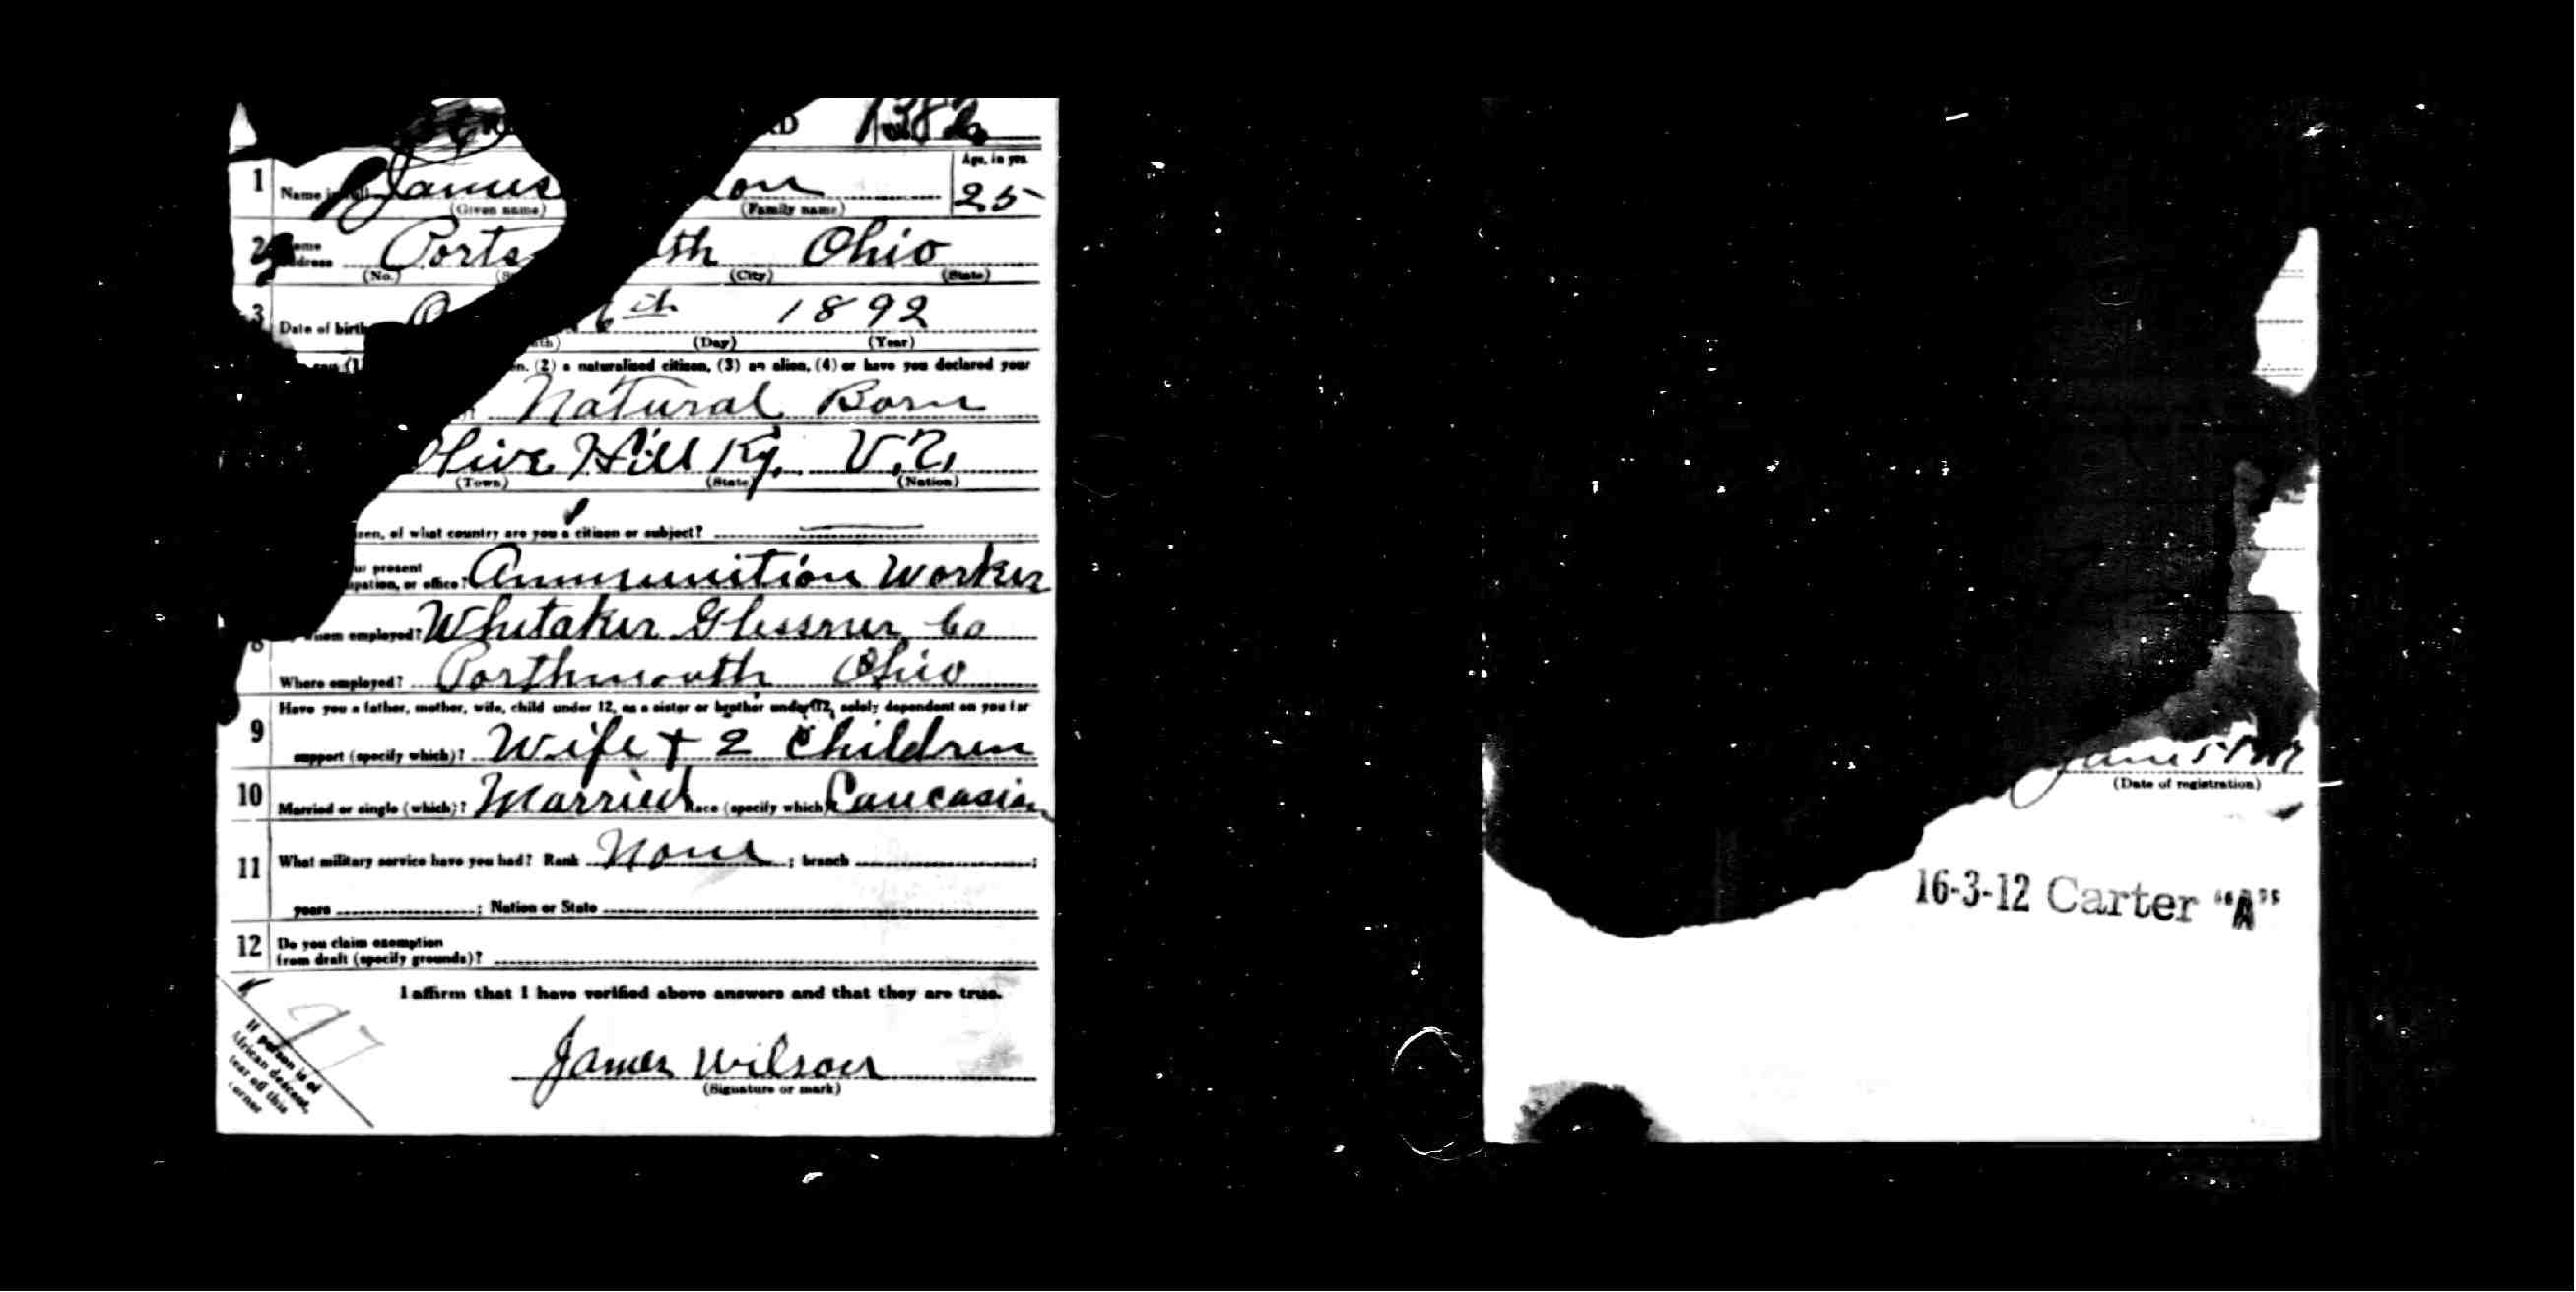 RD 1382
1 Name in full James on Age, in yrs. 25
(Given name) (Family name)
2 Home address Ports th Ohio
(No.) (City) (State)
3 Date of birth 6th 1892
(Day) (Year)
(2) a naturalized citizen, (3) an alien, (4) or have you declared your
Natural Born
Olive Hill Ky.
(Town) (State) (Nation)
zen, of what country are you a citizen or subject?
ur present
pation, or office? Ammunition Worker
whom employed? Whitaker Glessner Co
8
Where employed? Porthmouth Ohio
9 Have you a father, mother, wife, child under 12, or a sister or brother under 12, solely dependent on you for
support (specify which)? Wife + 2 Children
10 Married or single (which)? Married Race (specify which)? Caucasian
11 What military service have you had? Rank None ; branch ;
years ; Nation or State
12 Do you claim exemption
from draft (specify grounds)?
I affirm that I have verified above answers and that they are true.
97
If person is of
African descent,
tear off this
corner
James Wilson
(Signature or mark)
June 5
(Date of registration)
16-3-12 Carter "A"